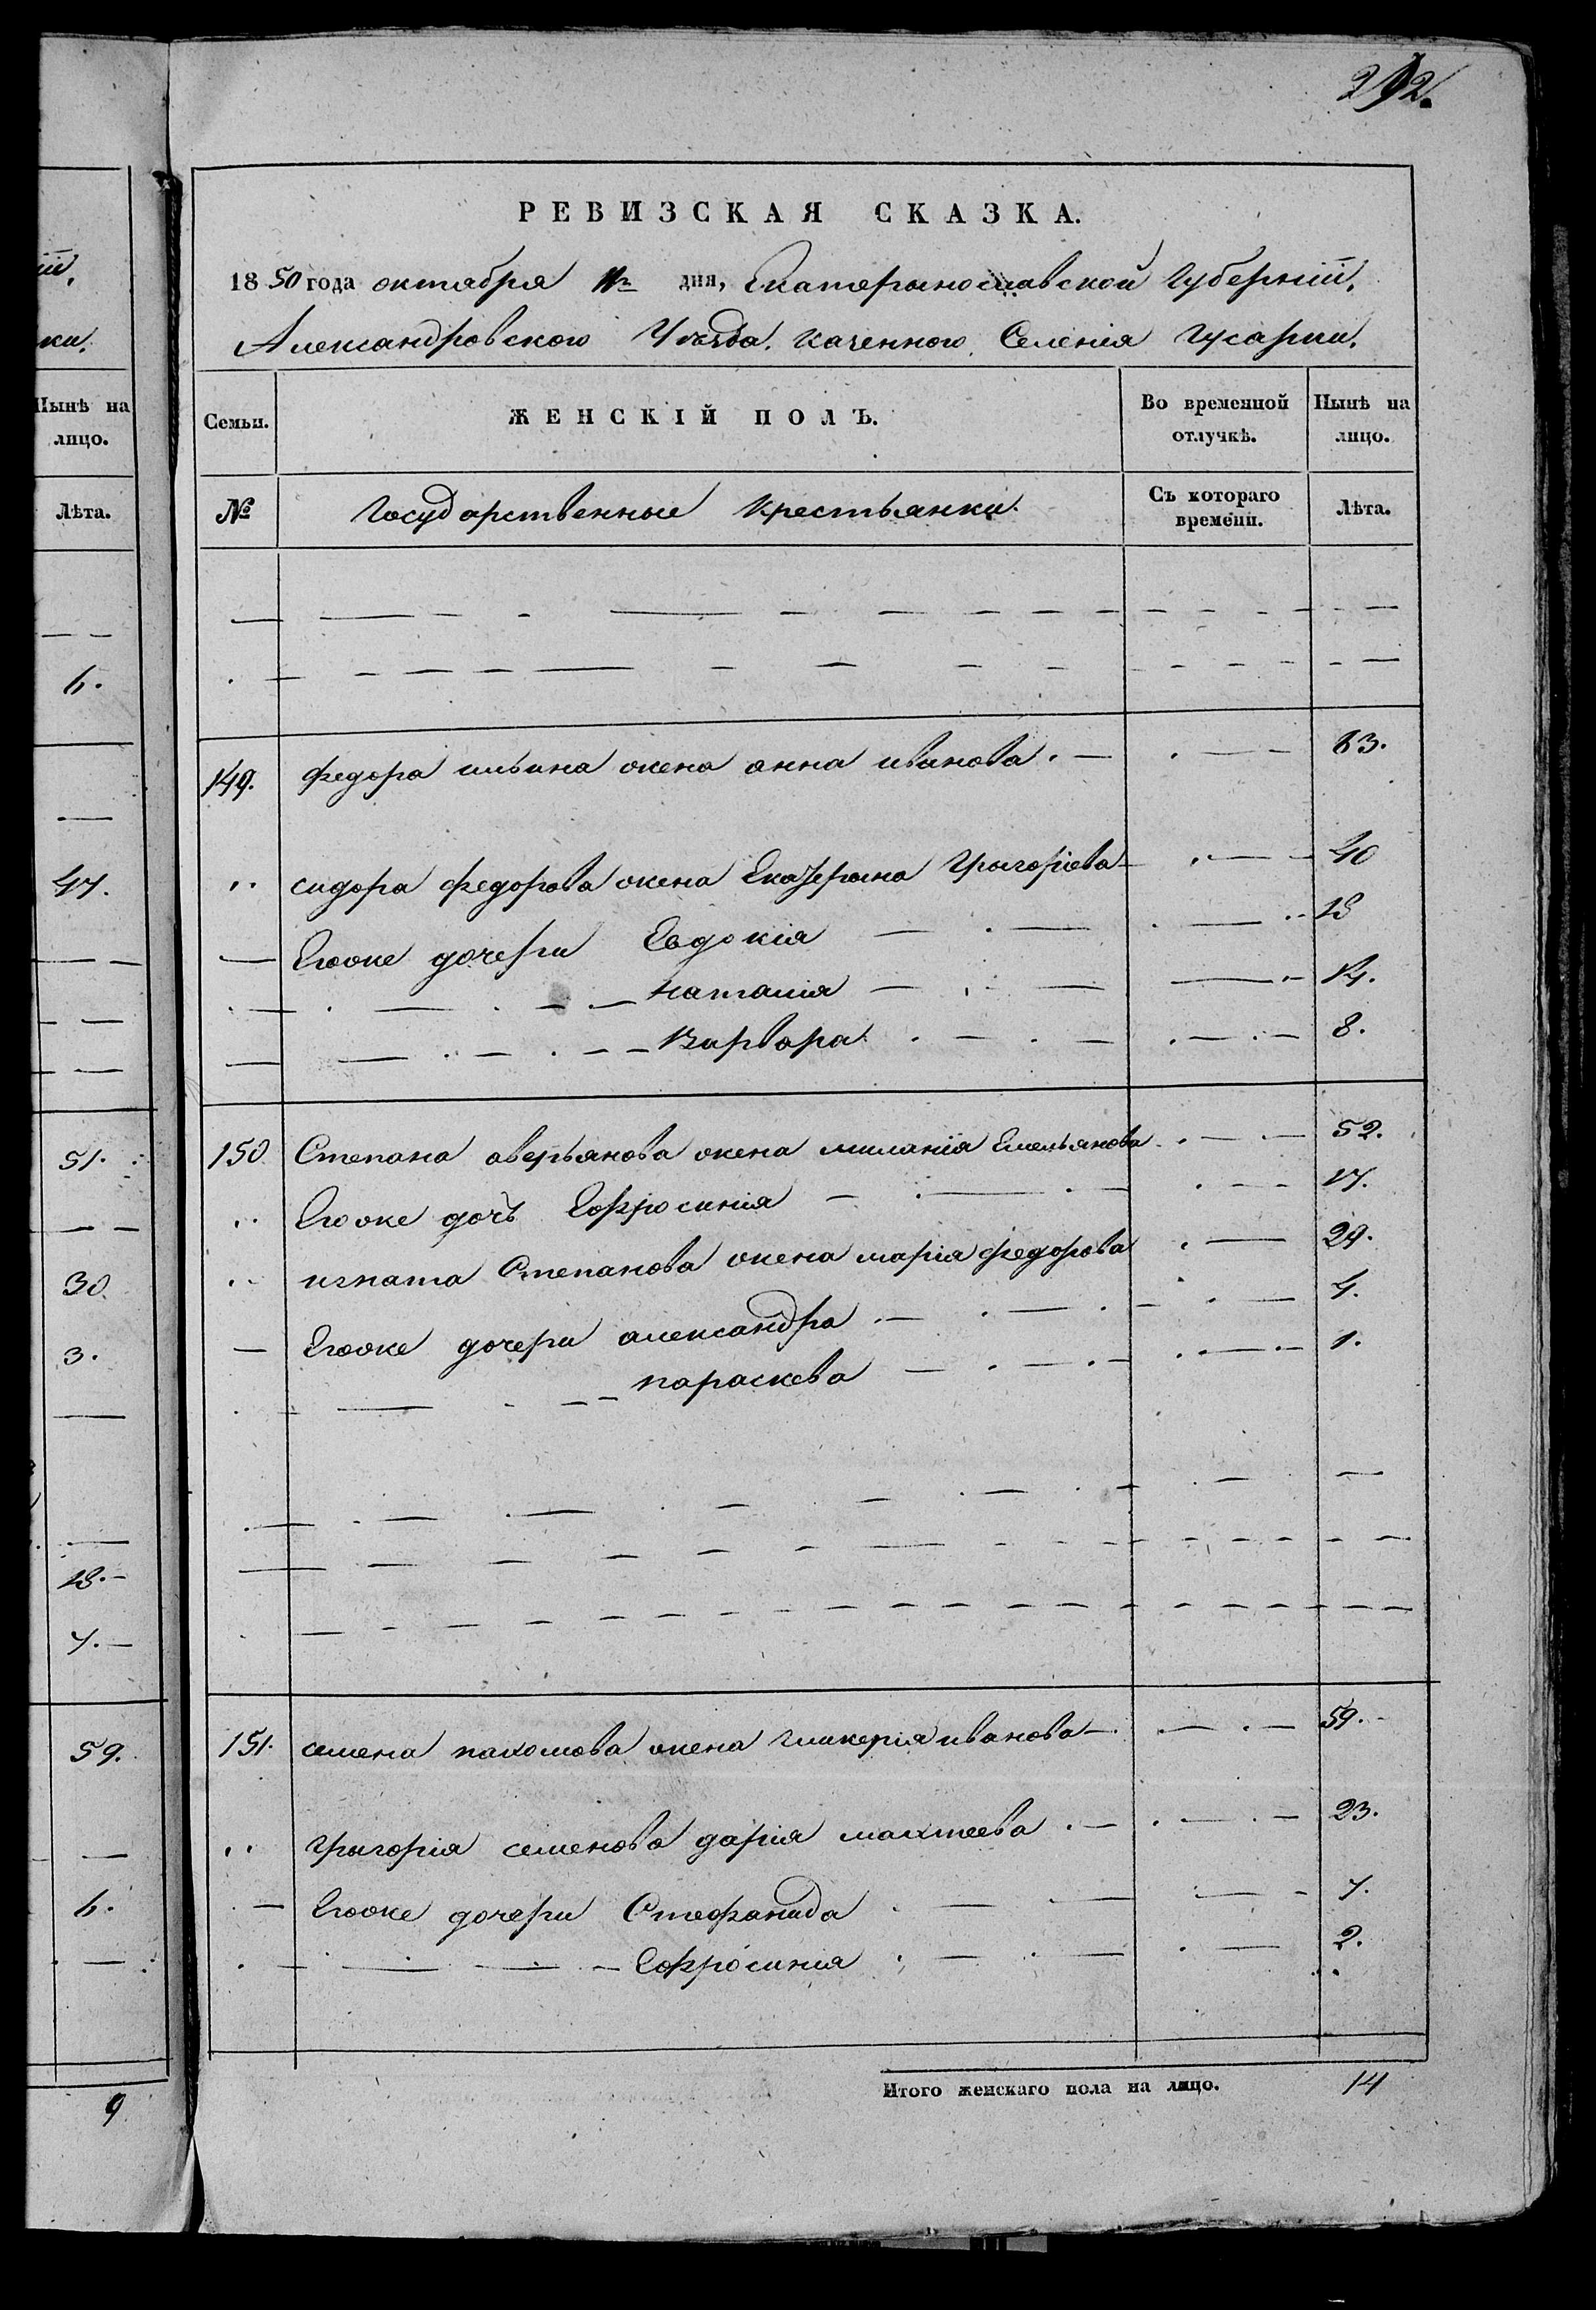 292.
РЕВИЗСКАЯ СКАЗКА.
1850 года октября дня, Екатерынославской Губерніи,
Александровского Уѣзда. Казенного Селенія Гусарки.
Семьи. ЖЕНСКІЙ ПОЛЪ. Во временной отлучкѣ. Нынѣ на лицо.
№ Государственные Крестьянки. Съ котораго времени. Лѣта.
149. федора ильина жена анна иванова. 63.
сидора федорова жена Екатерына Грыгоріева 40
Егоже дочери Евдокія 18
Наталія 14.
Варвара 8.
150 Степана аверьянова жена миланія Емельянова 52.
Егоже дочь Ефросинія 17.
игната Степанова жена марія федорова 29.
Егоже дочери александра 4.
параскева 1.
151. семена пахомова жена гликерія иванова 59.
Грыгорія семенова дарія матвеева 23.
Егоже дочери Стефанида 7.
Ефросинія 2.
Итого женскаго пола на лицо. 14
ки.
Нынѣ на
лицо.
Лѣта.
6.
47.
51.
30.
3.
18.
7.
59.
6.
9